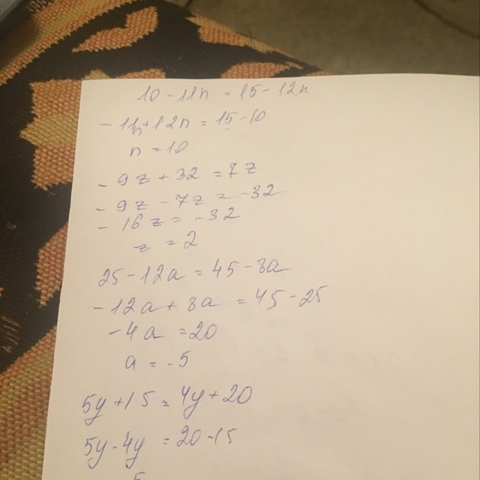 10 - 11n = 15 - 12n
- 11n + 12n = 15 - 10
n = 10
- 9z + 32 = 7z
- 9z - 7z = -32
- 16z = -32
z = 2
25 - 12a = 45 - 8a
- 12a + 8a = 45 - 25
- 4a = 20
a = -5
5y + 15 = 4y + 20
5y - 4y = 20 - 15